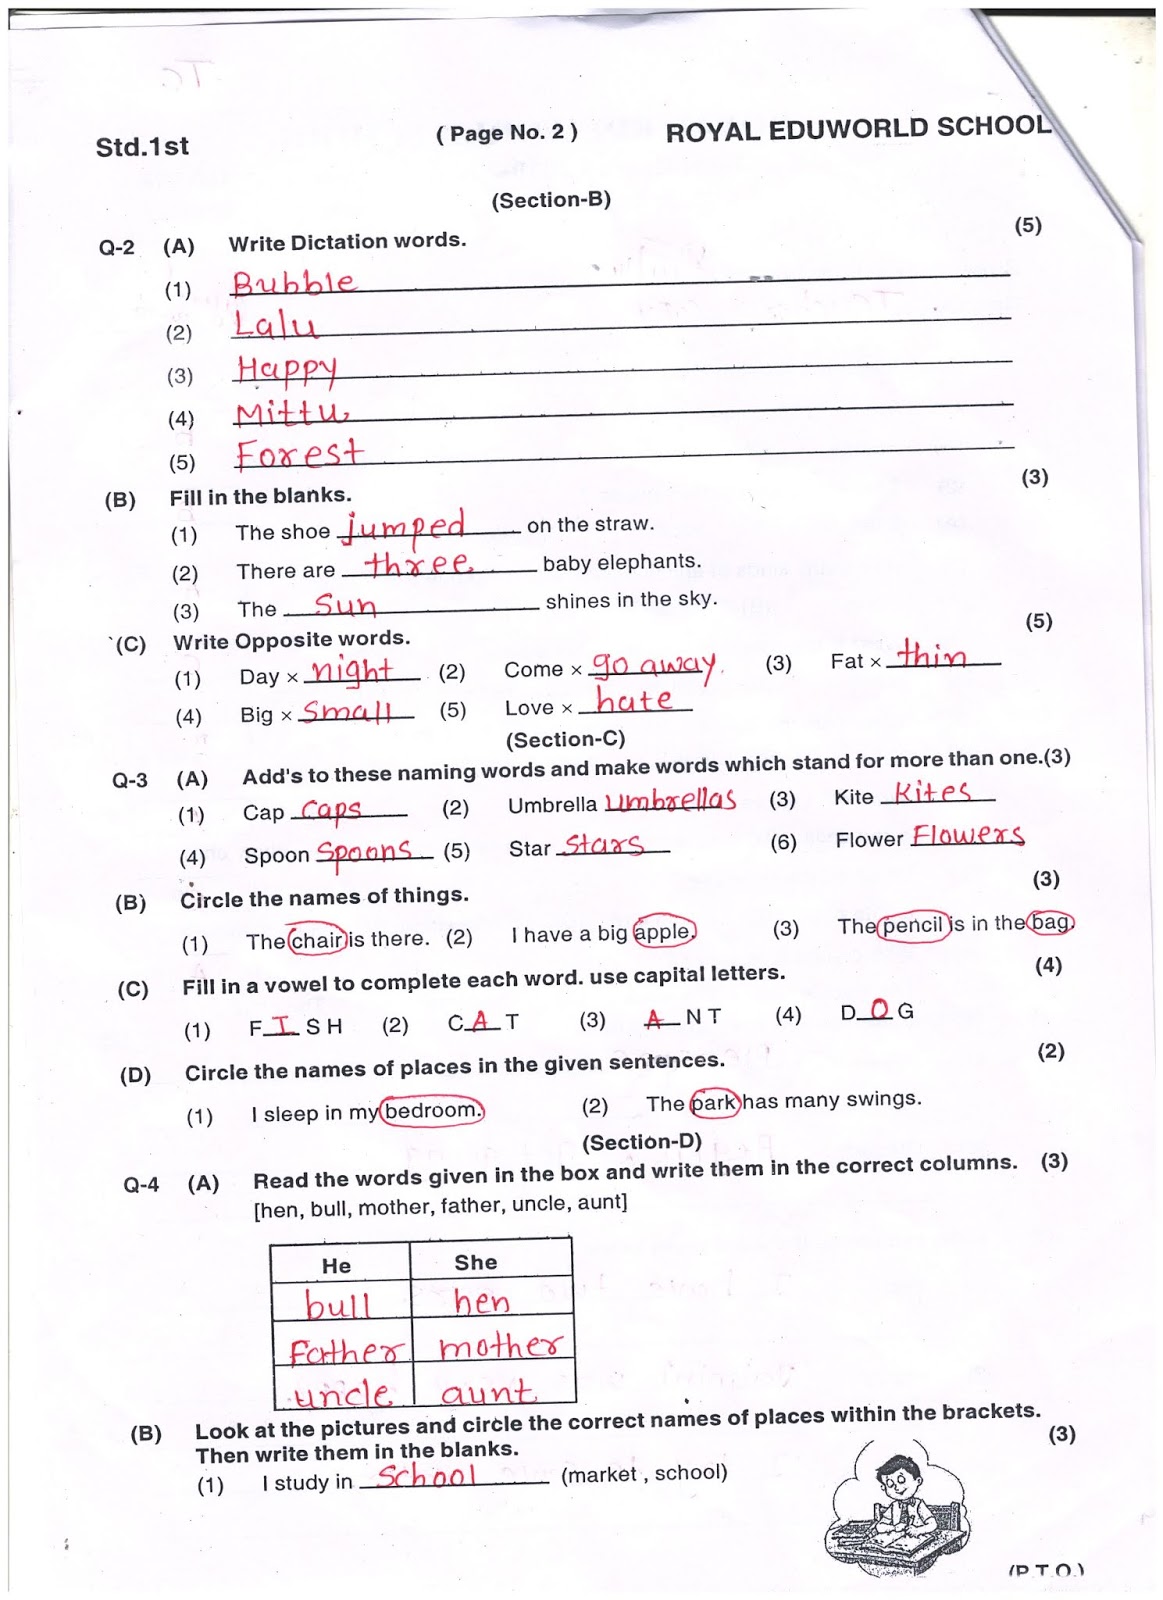 Std.1st ( Page No. 2 ) ROYAL EDUWORLD SCHOOL
(Section-B)
Q-2 (A) Write Dictation words. (5)
(1) Bubble
(2) Lalu
(3) Happy
(4) Mittu
(5) Forest
(B) Fill in the blanks. (3)
(1) The shoe jumped on the straw.
(2) There are three baby elephants.
(3) The Sun shines in the sky.
(C) Write Opposite words. (5)
(1) Day × night (2) Come × go away (3) Fat × thin
(4) Big × Small (5) Love × hate
(Section-C)
Q-3 (A) Add's to these naming words and make words which stand for more than one.(3)
(1) Cap caps (2) Umbrella Umbrellas (3) Kite Kites
(4) Spoon Spoons (5) Star Stars (6) Flower Flowers
(B) Circle the names of things. (3)
(1) The chair is there. (2) I have a big apple. (3) The pencil is in the bag.
(C) Fill in a vowel to complete each word. use capital letters. (4)
(1) F I S H (2) C A T (3) A N T (4) D O G
(D) Circle the names of places in the given sentences. (2)
(1) I sleep in my bedroom. (2) The park has many swings.
(Section-D)
Q-4 (A) Read the words given in the box and write them in the correct columns. (3)
[hen, bull, mother, father, uncle, aunt]
He She
bull hen
Father mother
uncle aunt
(B) Look at the pictures and circle the correct names of places within the brackets. (3)
Then write them in the blanks.
(1) I study in School (market , school)
(P.T.O.)